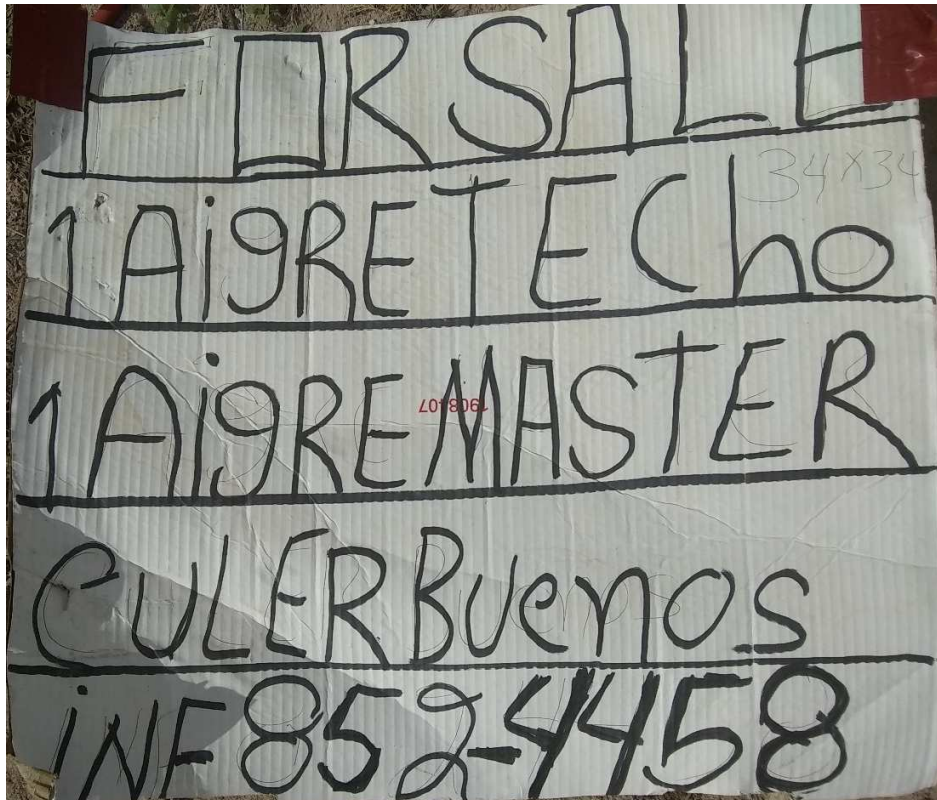 FOR SALE
34 x 34
1 AigRE TECho
1 AigRE MASTER
1908407
CULER Buenos
iNF 852-4458